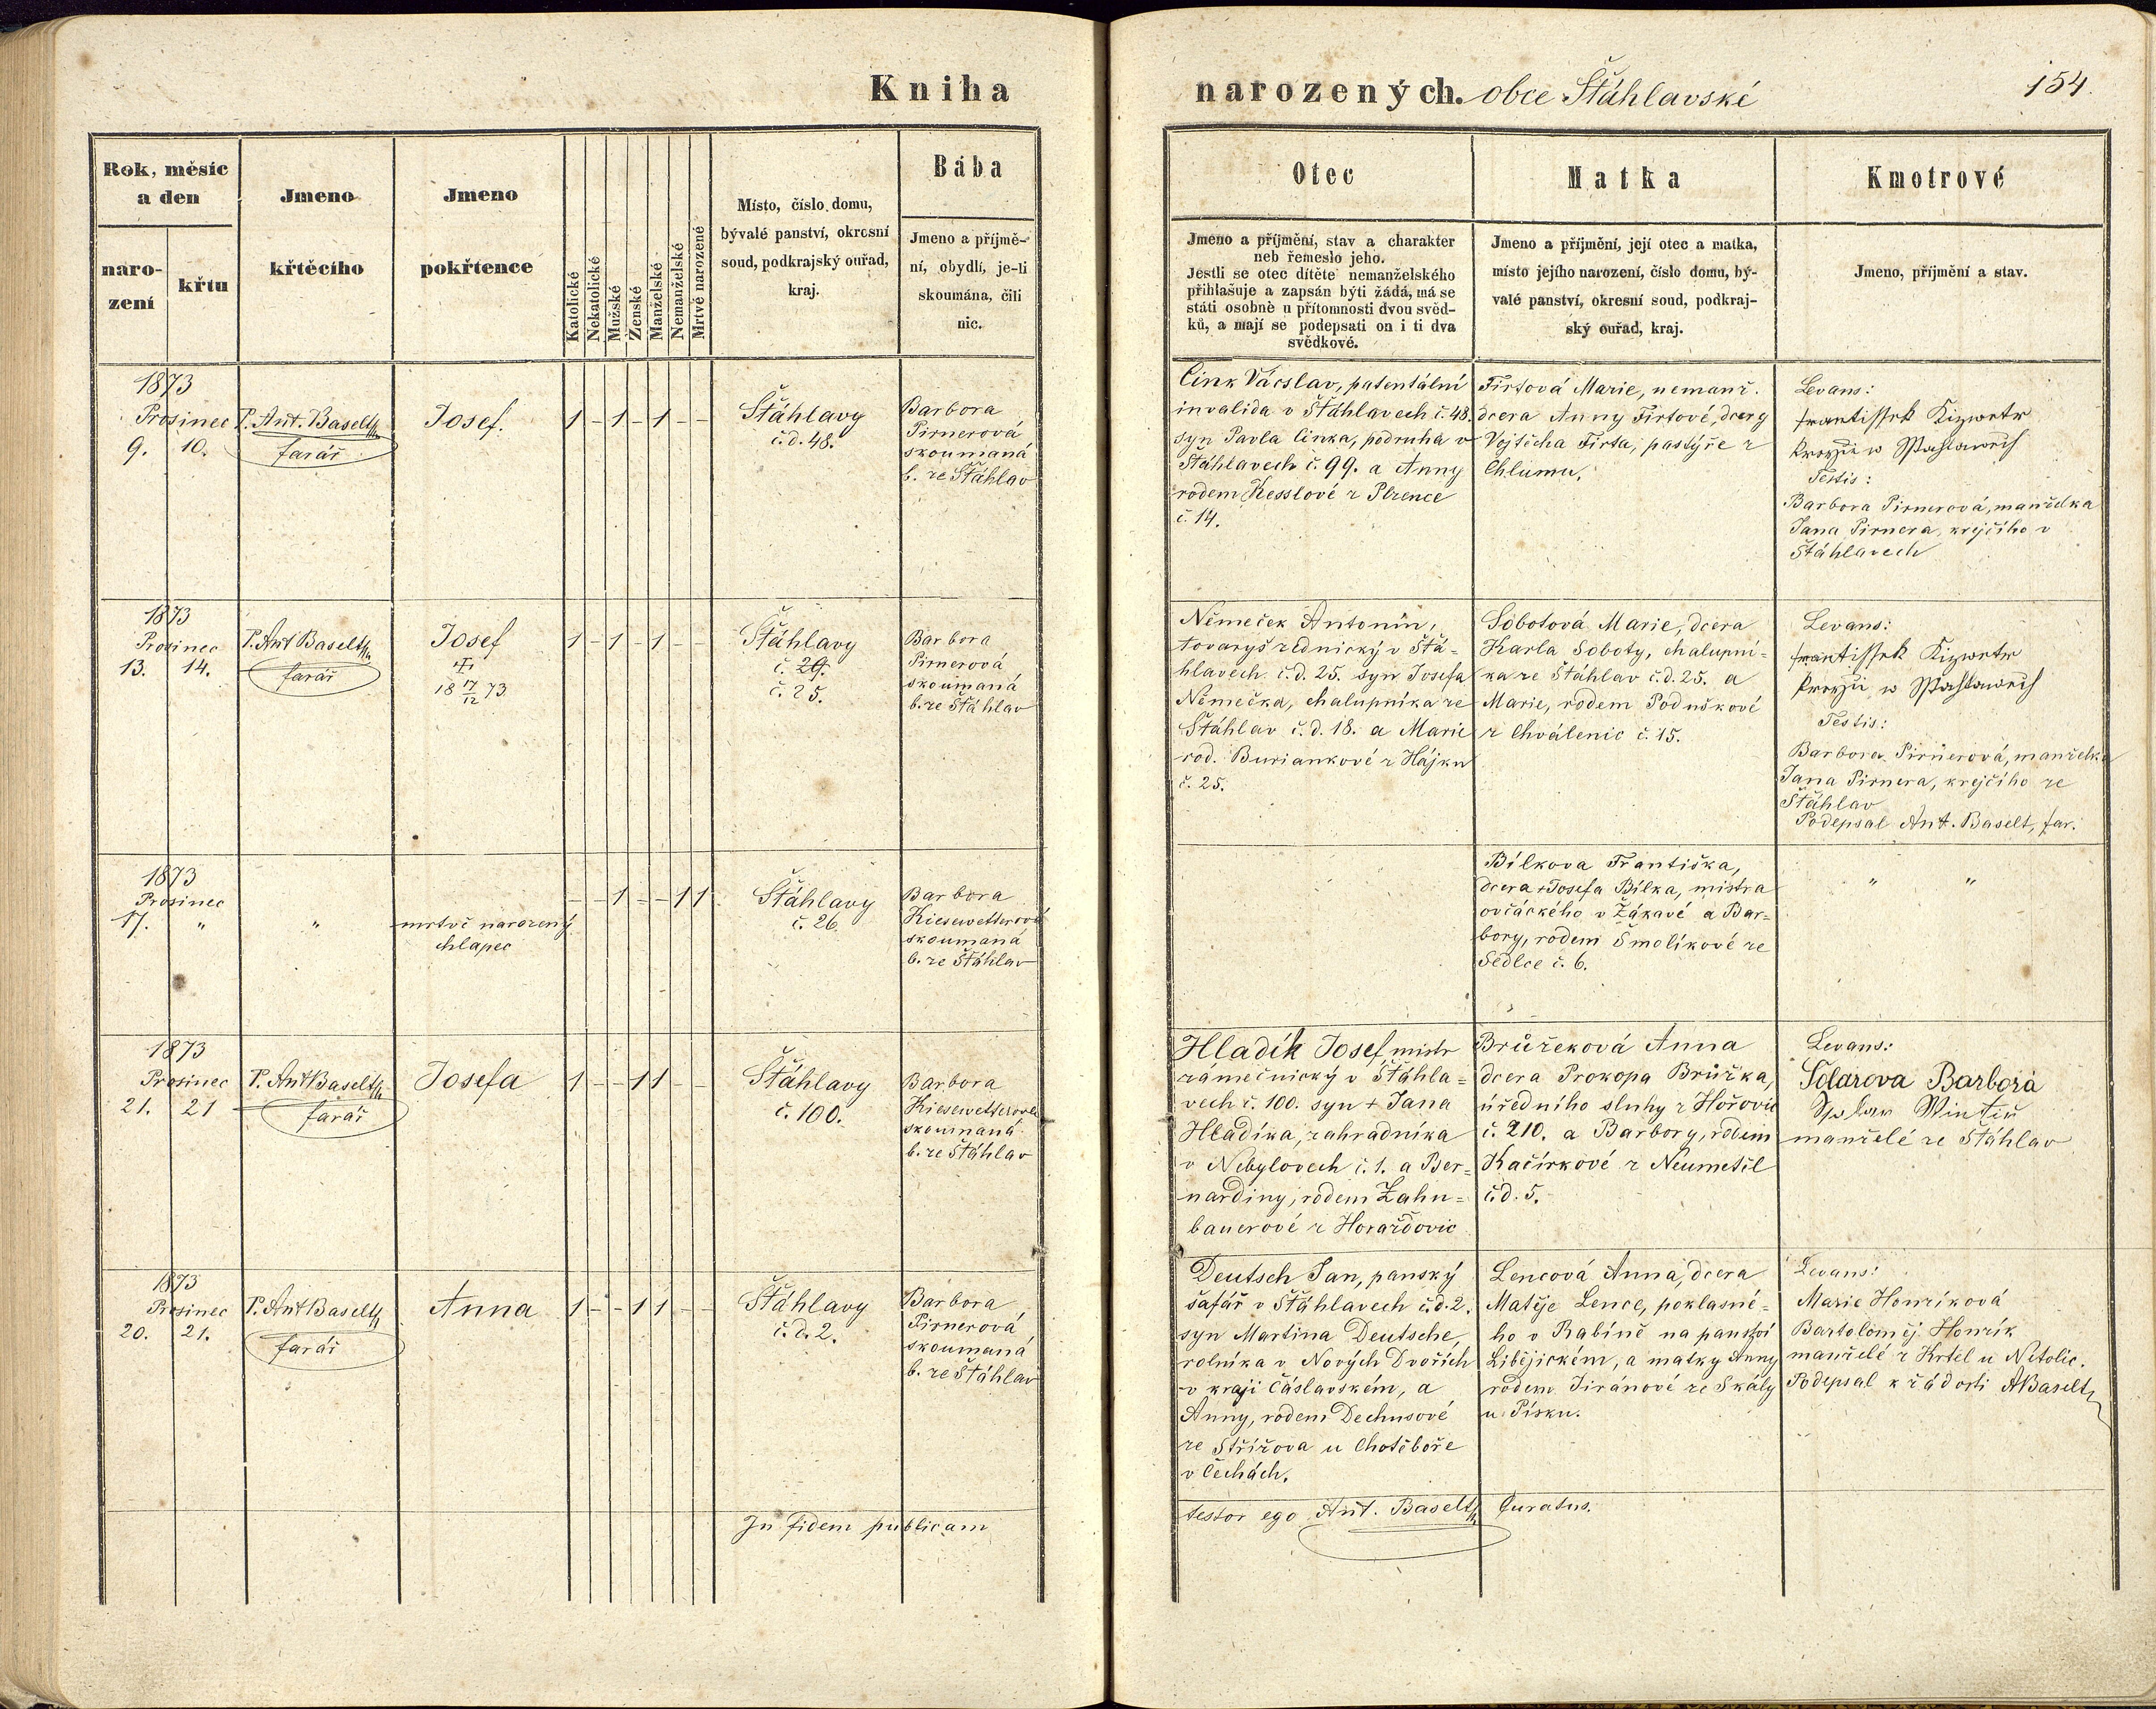 Kniha
Rok, měsíc
a den
naro-
zení
křtu
Jmeno
křtěcího
Jmeno
pokřtence
Katolické
Nekatolické
Mužské
Ženské
Manželské
Nemanželské
Mrtvě narozené
Místo, číslo domu,
bývalé panství, okresní
soud, podkrajský ouřad,
kraj.
Bába
Jmeno a příjmě-
ní, obydlí, je-li
skoumána, čili
nic.
1873
Prosinec
9. 10.
P. Ant. Baselt
farář
Josef.
1 - 1 - 1 - -
Šťáhlavy
č.d. 48.
Barbora
Pirnerová
skoumaná
b. ze Šťáhlav
1873
Prosinec
13. 14.
P. Ant Baselt
farář
Josef
18 17/12 73
1 - 1 - 1 - -
Šťáhlavy
č. 29.
č. 25.
Barbora
Pirnerová
skoumaná
b. ze Šťáhlav
1873
Prosinec
17. "
"
mrtvě narozený
chlapec
- - 1 - - 1 1
Šťáhlavy
č. 26
Barbora
Kiesewetterová
skoumaná
b. ze Šťáhlav
1873
Prosinec
21. 21
P. Ant Baselt
farář
Josefa
1 - - 1 1 - -
Šťáhlavy
č. 100.
Barbora
Kiesewetterová
skoumaná
b. ze Šťáhlav
1873
Prosinec
20. 21.
P. Ant Baselt
farář
Anna
1 - - 1 1 - -
Šťáhlavy
č. d. 2.
Barbora
Pirnerová
skoumaná
b. ze Šťáhlav
In fidem publicam
narozených. obce Šťáhlavské
154.
Otec
Jmeno a příjmění, stav a charakter
neb řemeslo jeho.
Jestli se otec dítěte nemanželského
přihlašuje a zapsán býti žádá, má se
státi osobně u přítomnosti dvou svěd-
ků, a mají se podepsati on i ti dva
svědkové.
Matka
Jmeno a příjmění, její otec a matka,
místo jejího narození, číslo domu, bý-
valé panství, okresní soud, podkraj-
ský ouřad, kraj.
Kmotrové
Jmeno, příjmění a stav.
Cink Vácslav, patentální
invalida v Šťáhlavech č. 48.
syn Pavla Cinka, podruha v
Šťáhlavech č. 99. a Anny
rodem Kesslové z Plzence
č. 14.
Firtová Marie, nemanž.
dcera Anny Firtové, dcery
Vojtěcha Firta, pastýře z
Chlumu.
Levans:
Testis:
Barbora Pirnerová, manželka
Jana Pirnera, krejčího v
Šťáhlavech
Němeček Antonín,
tovaryš zednický v Šťá-
hlavech č.d. 25. syn Josefa
Němečka, chalupníka ze
Šťáhlav č.d. 18. a Marie
rod. Buriankové z Hájku
č. 25.
Sobotová Marie, dcera
Karla Soboty, chalupní-
ka ze Šťáhlav č.d. 25. a
Marie, rodem Poduškové
z Chválenic č. 15.
Levans:
Testis:
Barbora Pirnerová, manželka
Jana Pirnera, krejčího ze
Šťáhlav
Podepsal Ant. Baselt, far.
Bílkova Františka,
dcera + Josefa Bílka, mistra
ovčáckého v Žákavé a Bar-
bory, rodem Smolíkové ze
Sedlce č. 6.
" "
Hladík Josef mistr
zámečnický v Šťáhla-
vech č. 100. syn + Jana
Hladíka, zahradníka
v Nebylovech č. 1. a Ber-
nardiny, rodem Zahn-
bauerové z Horažďovic
Brůžeková Anna
dcera Prokopa Brůžka,
úředního sluhy z Hořovic
č. 210. a Barbory, rodem
Kačírkové z Neumětel
č.d. 5.
Levans:
Barbora
manželé ze Šťáhlav
Deutsch Jan, panský
šafář v Šťáhlavech č.d. 2.
syn Martina Deutsche,
rolníka v Nových Dvořích
v kraji Čáslavském, a
Anny, rodem Dechnsové
ze Střížova u Chotěboře
v Čechách.
Lencová Anna, dcera
Matěje Lence, poklasné-
ho v Rabíně na panství
Libějickém, a matky Anny
rodem Jiránové ze Skály
u Písku.
Levans:
Marie Honzíková
Bartoloměj Honzík
manželé z Krtel u Netolic.
Podepsal k žádosti ABaselt
testor ego Ant. Baselt Curatus.